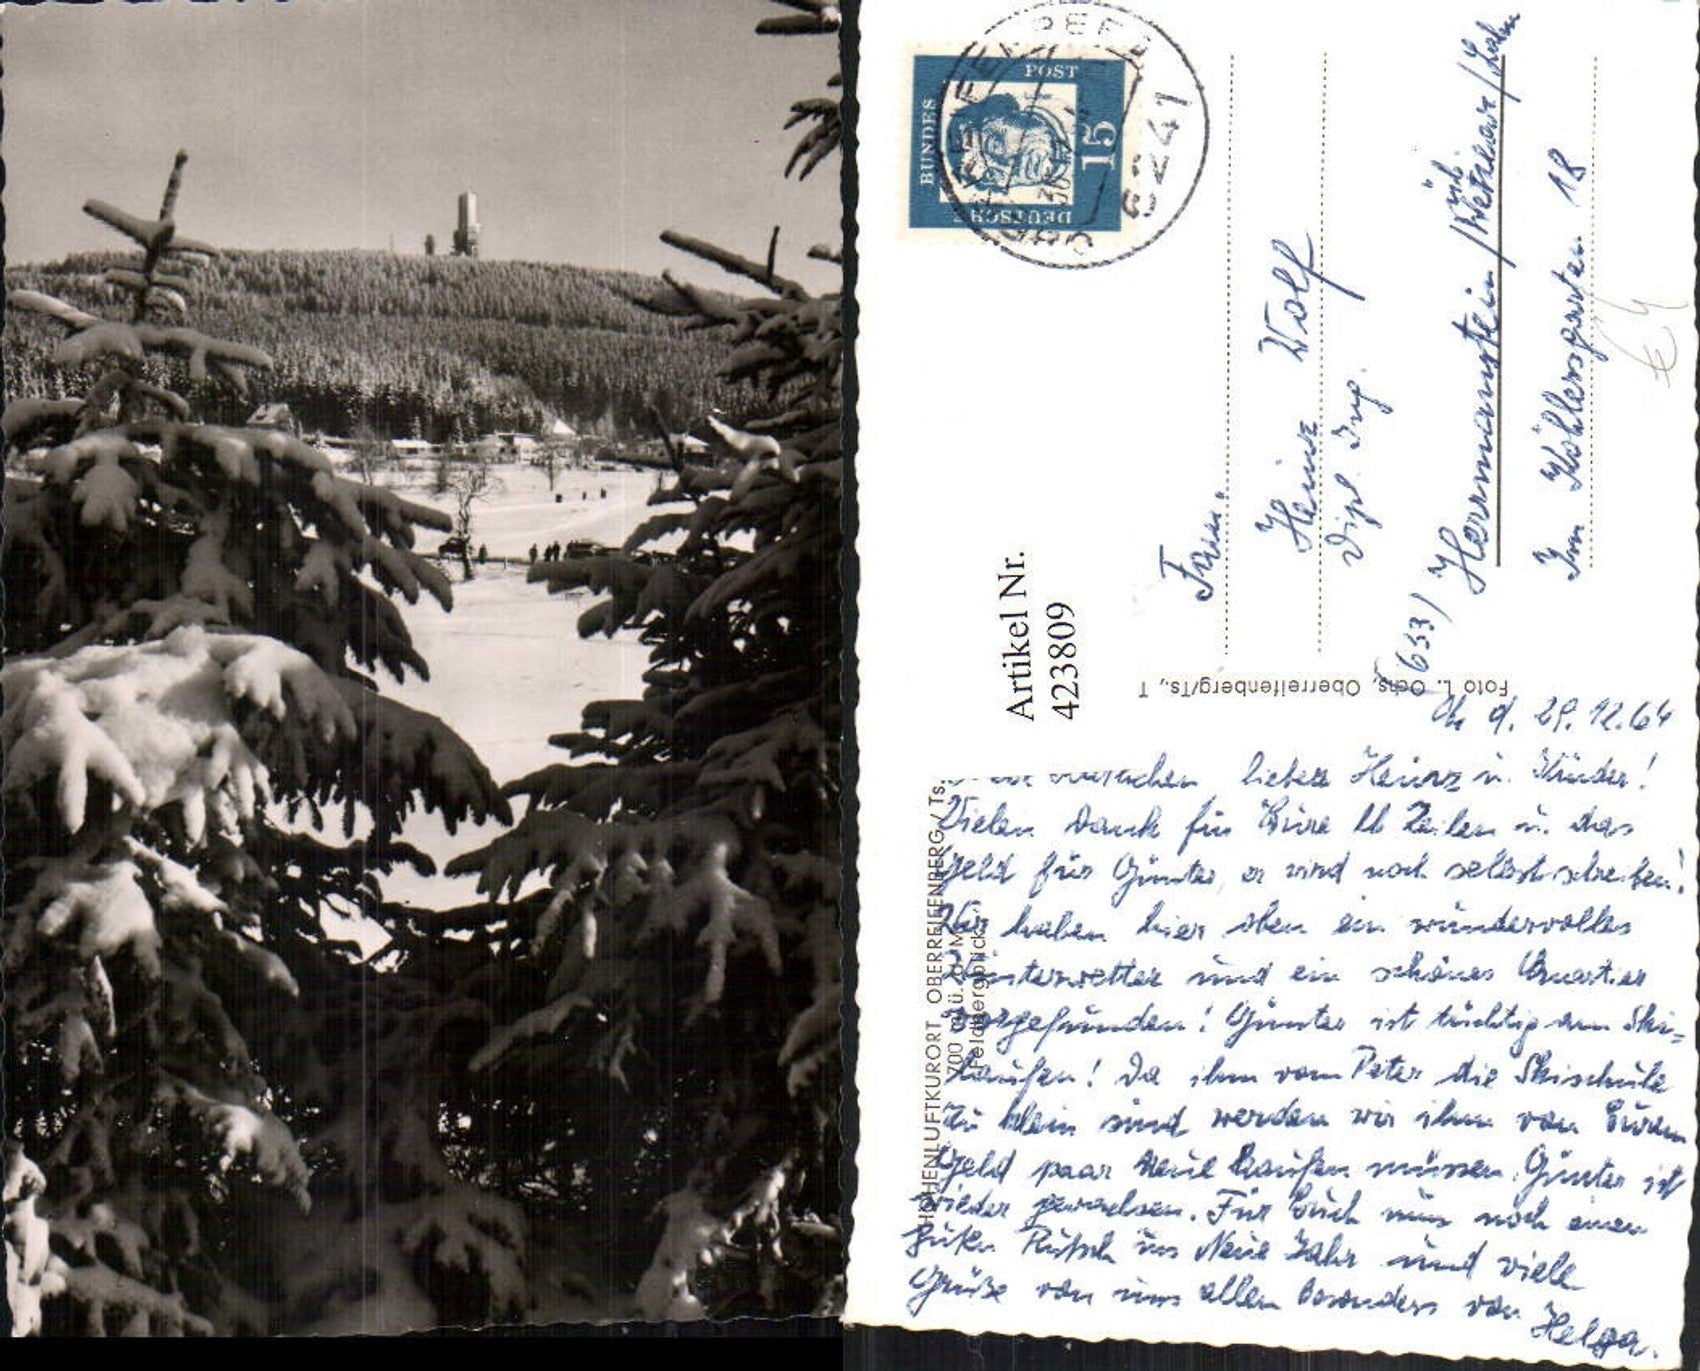 DEUTSCHE
BUNDES
POST
15
6241
Artikel Nr.
423809
Heinz Wolf
Dipl. Ing.
633/ Hermannstein / Wetzlar / Lahn
Im Köhlersgarten 18
Foto L. Ochs, Oberreifenberg/Ts., T
HÖHENLUFTKURORT OBERREIFENBERG / Ts.
700 m ü. d. M.
Feldbergblick
d. 29.12.64
lieber Heinz u. Kinder!
Vielen Dank für Eure lb Zeilen u. das
Geld für Günter, er wird noch selbst schreiben!
Wir haben hier oben ein wundervolles
Winterwetter und ein schönes Quartier
vorgefunden! Günter ist tüchtig am Ski-
laufen! Da ihm vom Peter die Skischuhe
zu klein sind werden wir ihm von Eurem
Geld paar neue kaufen müssen. Günter ist
wieder gewachsen. Für Euch nun noch einen
guten Rutsch ins Neue Jahr und viele
Grüße von uns allen besonders von
Helga.